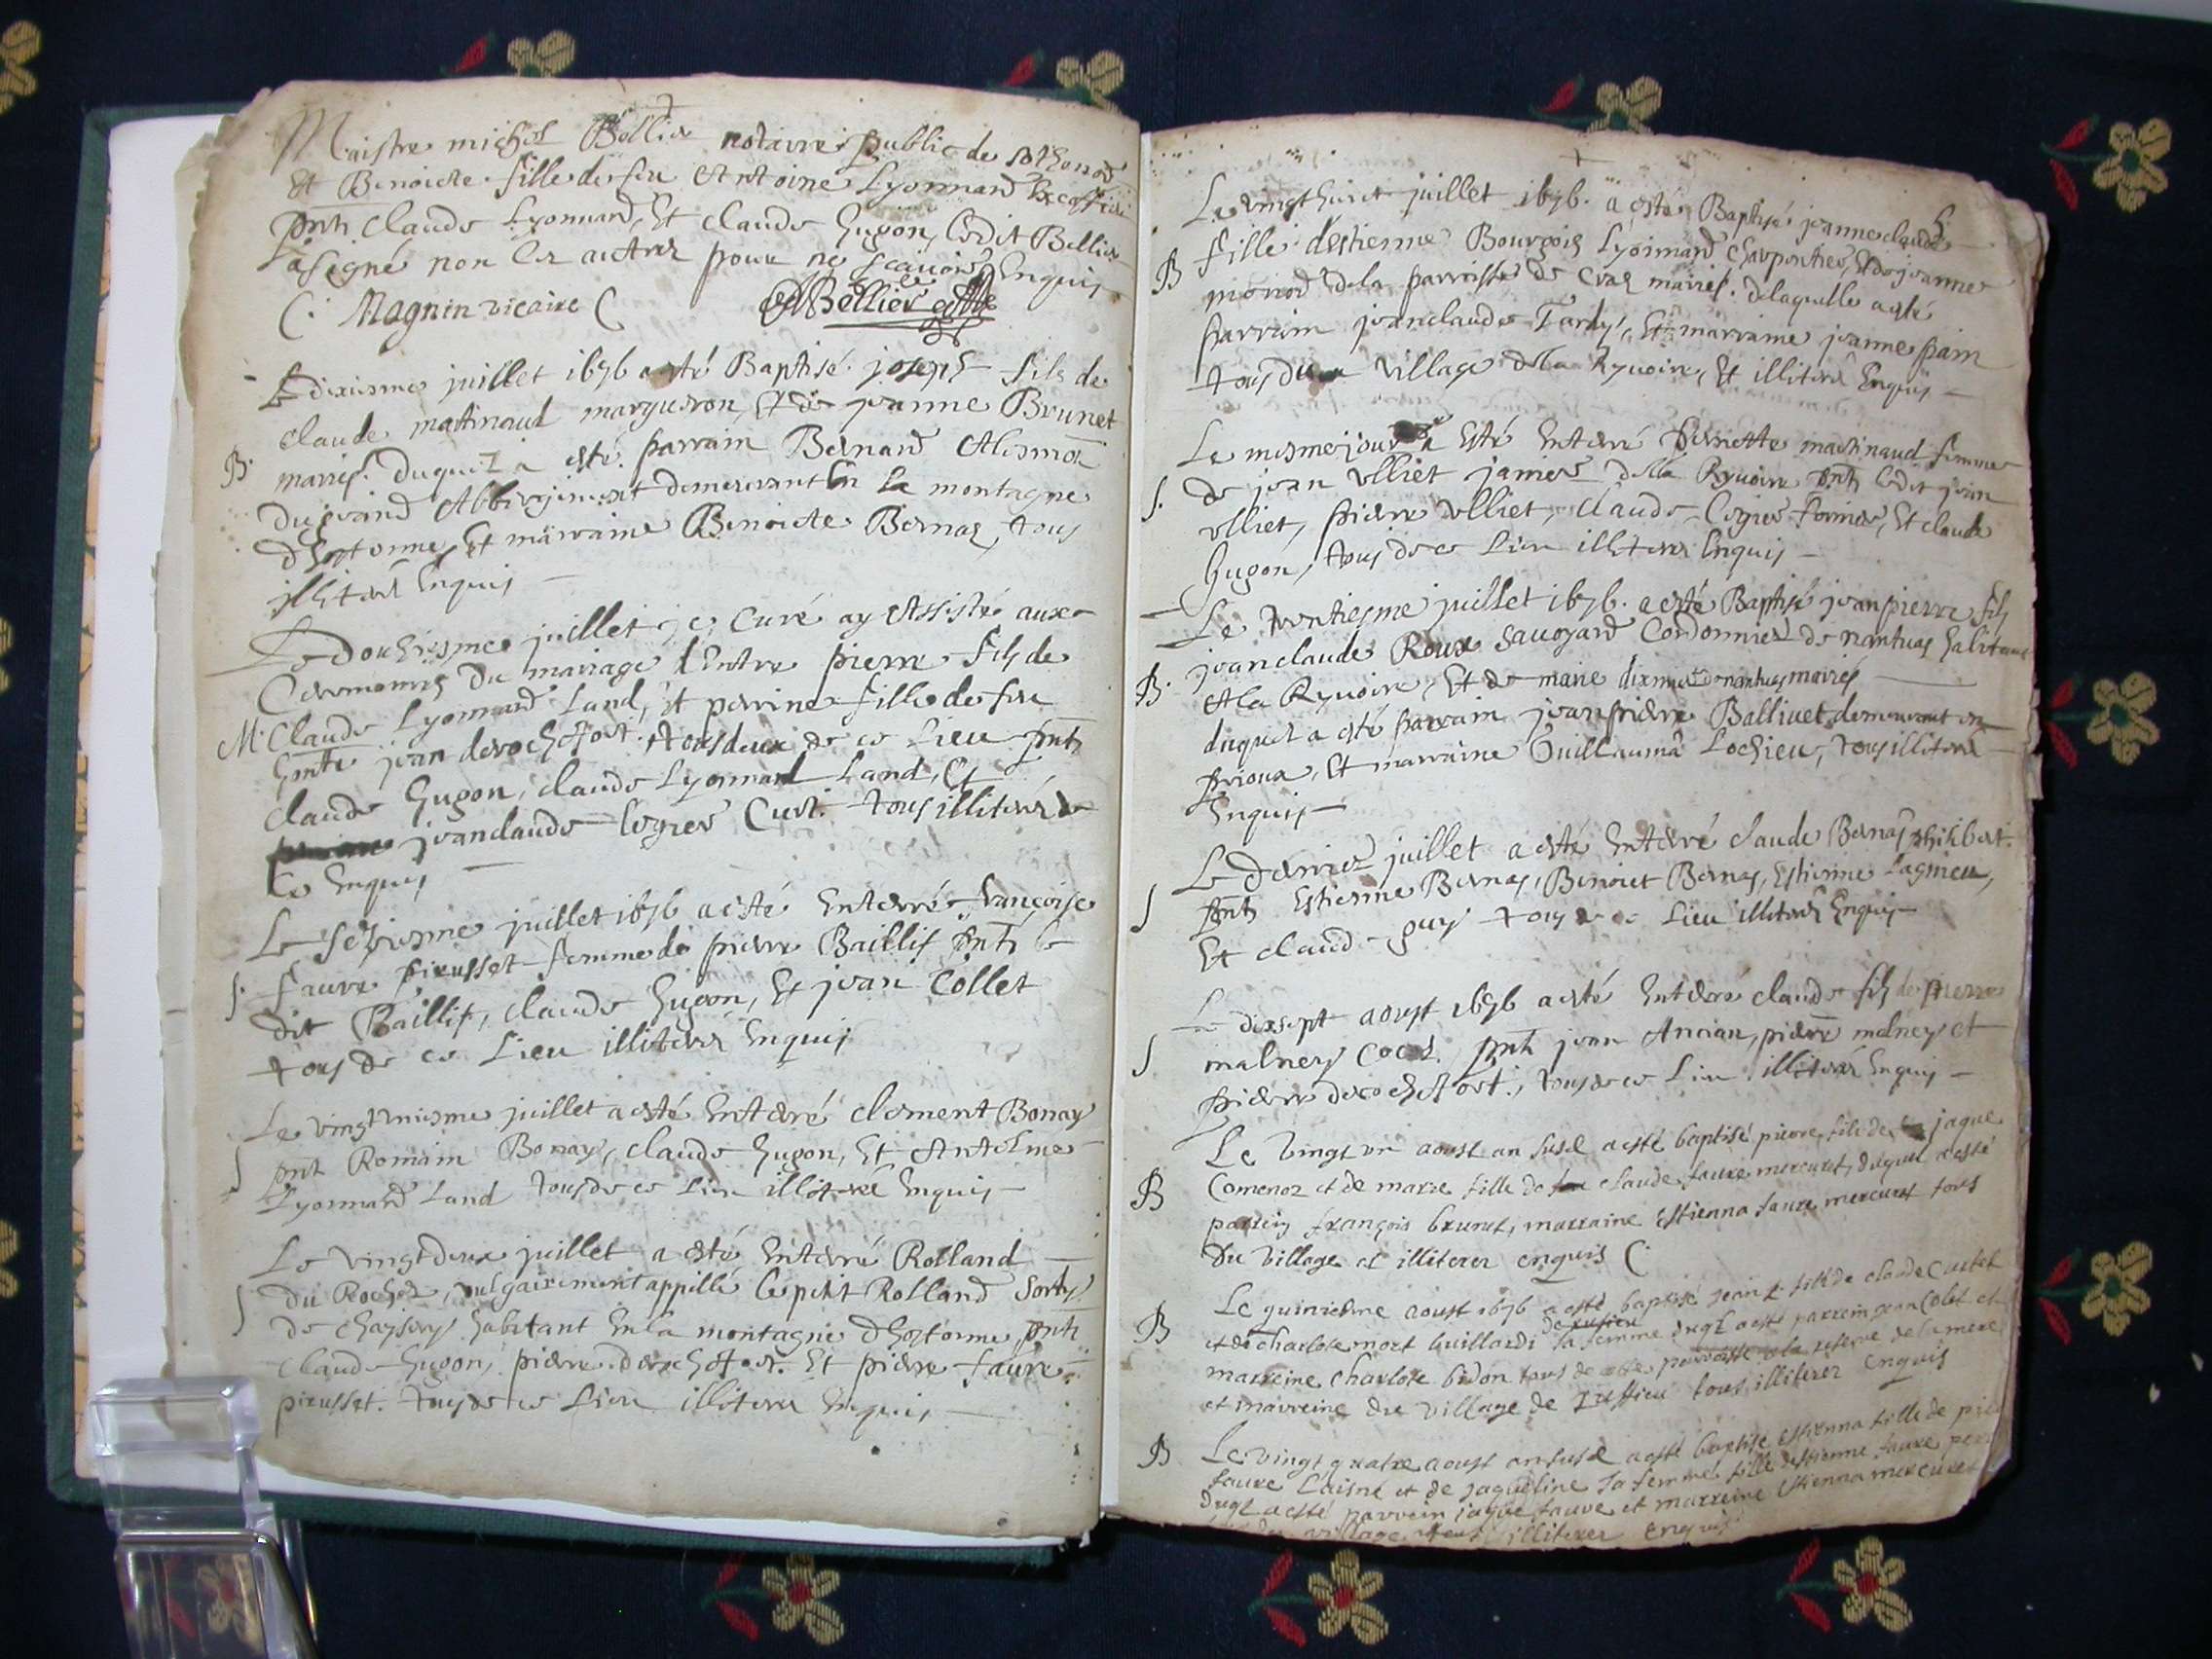 Maistre michel Bellier notaire public de sothonod
Et Benoicte fille de feu Anthoine Lyonnard
pnts claude Lyonnard, Et claude Hugon, ledit Bellier
a signé non les autres pour ne scavoir Enquis
Magnin vicaire Bellier
Le dixiesme juillet 1676 a esté Baptisé joseph fils de
claude martinaud margueron, Et de jeanne Brunet
B. mariés. duquel a esté parrain Bernard
du grand Abbergement demeurant En la montagne
d'hostonne, Et marraine Benoicte Bernaz, tous
illiterés Enquis
Le douziesme juillet je Curé ay Assisté aux
Ceremonies du mariage Entre pierre fils de
M. Claude Lyonnard Land, Et perrine fille de feu
jean derochefort. tous deux de ce Lieu pnts
claude Hugon, claude Lyonnard Land, Et
jeanclaude Cust. tous illiterés de
ce Enquis
Le seiziesme juillet 1676 a esté Enterré françoise
S. faure pirusset femme de pierre Baillif pnts le
dit Baillif, claude Hugon, Et jean Collet
tous de ce Lieu illiterés Enquis
Le vingtuniesme juillet a esté Enterré clement Bonay
S pnts Romain Bonay, claude Hugon, Et Anthelme
Lyonnard Land tous de ce Lieu illiterés Enquis
Le vingtdeux juillet a esté Enterré Rolland
S du Rocher, vulgairement appellé le petit Rolland sorty
de chaysery habitant En la montagne d'hostonne pnts
claude Hugon, pierre derochefort. Et pierre faure
pirusset. tous de ce Lieu illiterés Enquis
Le vingt huict juillet 1676. a esté Baptisé jeanne claude
B fille d'estienne Bourgois Lyonnard charpentier, Et de jeanne
monod de la parroisse de mariés. de laquelle a esté
parrain jeanclaude Tardy, Et marraine jeanne pain
tous du village de la Ryvoire, Et illiterés Enquis
Le mesme jour a Esté Enterré pernette martinaud femme
S. de jean ulliet janier de la Ryvoire pnts ledit jean
ulliet, pierre ulliet, claude fornier, Et claude
Hugon, tous de ce Lieu illiterés Enquis
Le trentiesme juillet 1676. a esté Baptisé jeanpierre fils
jeanclaude Roux savoyard Cordonnier de nantuas habitant
B. A la Ryvoire, Et de marie de nantuas mariés
duquel a esté parrain jeanpierre Ballivet demeurant en
prioux, Et marraine Guillauma Lochieu, tous illiterés
Enquis
Le dernier juillet a esté Enterré claude Bernaz philibert.
S pnts Estienne Bernaz, Benoict Bernaz, Estienne Lagnieu,
Et claude guy tous de ce Lieu illiterés Enquis
Le dixsept aoust 1676 a esté Enterré claude fils de pierre
S malney pnts jean Ancian, pierre malney et
pierre derochefort, tous de ce Lieu illiterés Enquis
Le vingt un aoust an susd a esté baptisé pierre fils de jaque
B Comenoz et de marie fille de claude faure mercuret, duquel a esté
parrein françois brunet, marraine Estienna faure mercuret tous
du village et illiterez enquis
Le quinziesme aoust 1676 a esté baptisé fils de claude Cartet
B et de charlote mort Guillardi sa femme duql a esté parrein jean Colet et
de rufieu
marreine charlote bidon tous de parroisse a la reserve de la mere
et marreine du village de rufieu tous illiterez enquis
B Le vingt quatre aoust an susd a esté baptisé Estienna fille de
faure Laisné et de jaqueline sa femme, fille destienne faure
duql a esté parrein jaque faure et marreine Estienna mercuret
village illiterez enquis